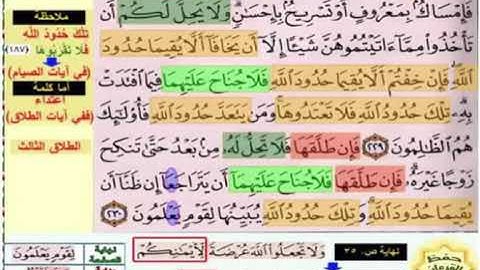 فَإِمْسَاكٌ بِمَعْرُوفٍ أَوْ تَسْرِيحٌ بِإِحْسَانٍ وَلَا يَحِلُّ لَكُمْ أَن
تَأْخُذُوا مِمَّا ءَاتَيْتُمُوهُنَّ شَيْئًا إِلَّا أَن يَخَافَا أَلَّا يُقِيمَا حُدُودَ
اللَّهِ فَإِنْ خِفْتُمْ أَلَّا يُقِيمَا حُدُودَ اللَّهِ فَلَا جُنَاحَ عَلَيْهِمَا فِيمَا افْتَدَتْ
بِهِ تِلْكَ حُدُودُ اللَّهِ فَلَا تَعْتَدُوهَا وَمَن يَتَعَدَّ حُدُودَ اللَّهِ فَأُولَٰئِكَ
هُمُ الظَّالِمُونَ ٢٢٩ فَإِن طَلَّقَهَا فَلَا تَحِلُّ لَهُ مِن بَعْدُ حَتَّىٰ تَنكِحَ
زَوْجًا غَيْرَهُ فَإِن طَلَّقَهَا فَلَا جُنَاحَ عَلَيْهِمَا أَن يَتَرَاجَعَا إِن ظَنَّا أَن
يُقِيمَا حُدُودَ اللَّهِ وَتِلْكَ حُدُودُ اللَّهِ يُبَيِّنُهَا لِقَوْمٍ يَعْلَمُونَ ٢٣٠
ملاحظة
تِلْكَ حُدُودُ اللَّهِ
فَلَا تَقْرَبُوهَا (١٨٧)
(في آيات الصيام)
أما كلمة
اعتداء
(ففي آيات الطلاق)
الطلاق الثالث
حفظ
نهاية ص. ٣٥
وَلَا تَجْعَلُوا اللَّهَ عُرْضَةً لِأَيْمَانِكُمْ
نهاية الصفحة
لِقَوْمٍ يَعْلَمُونَ